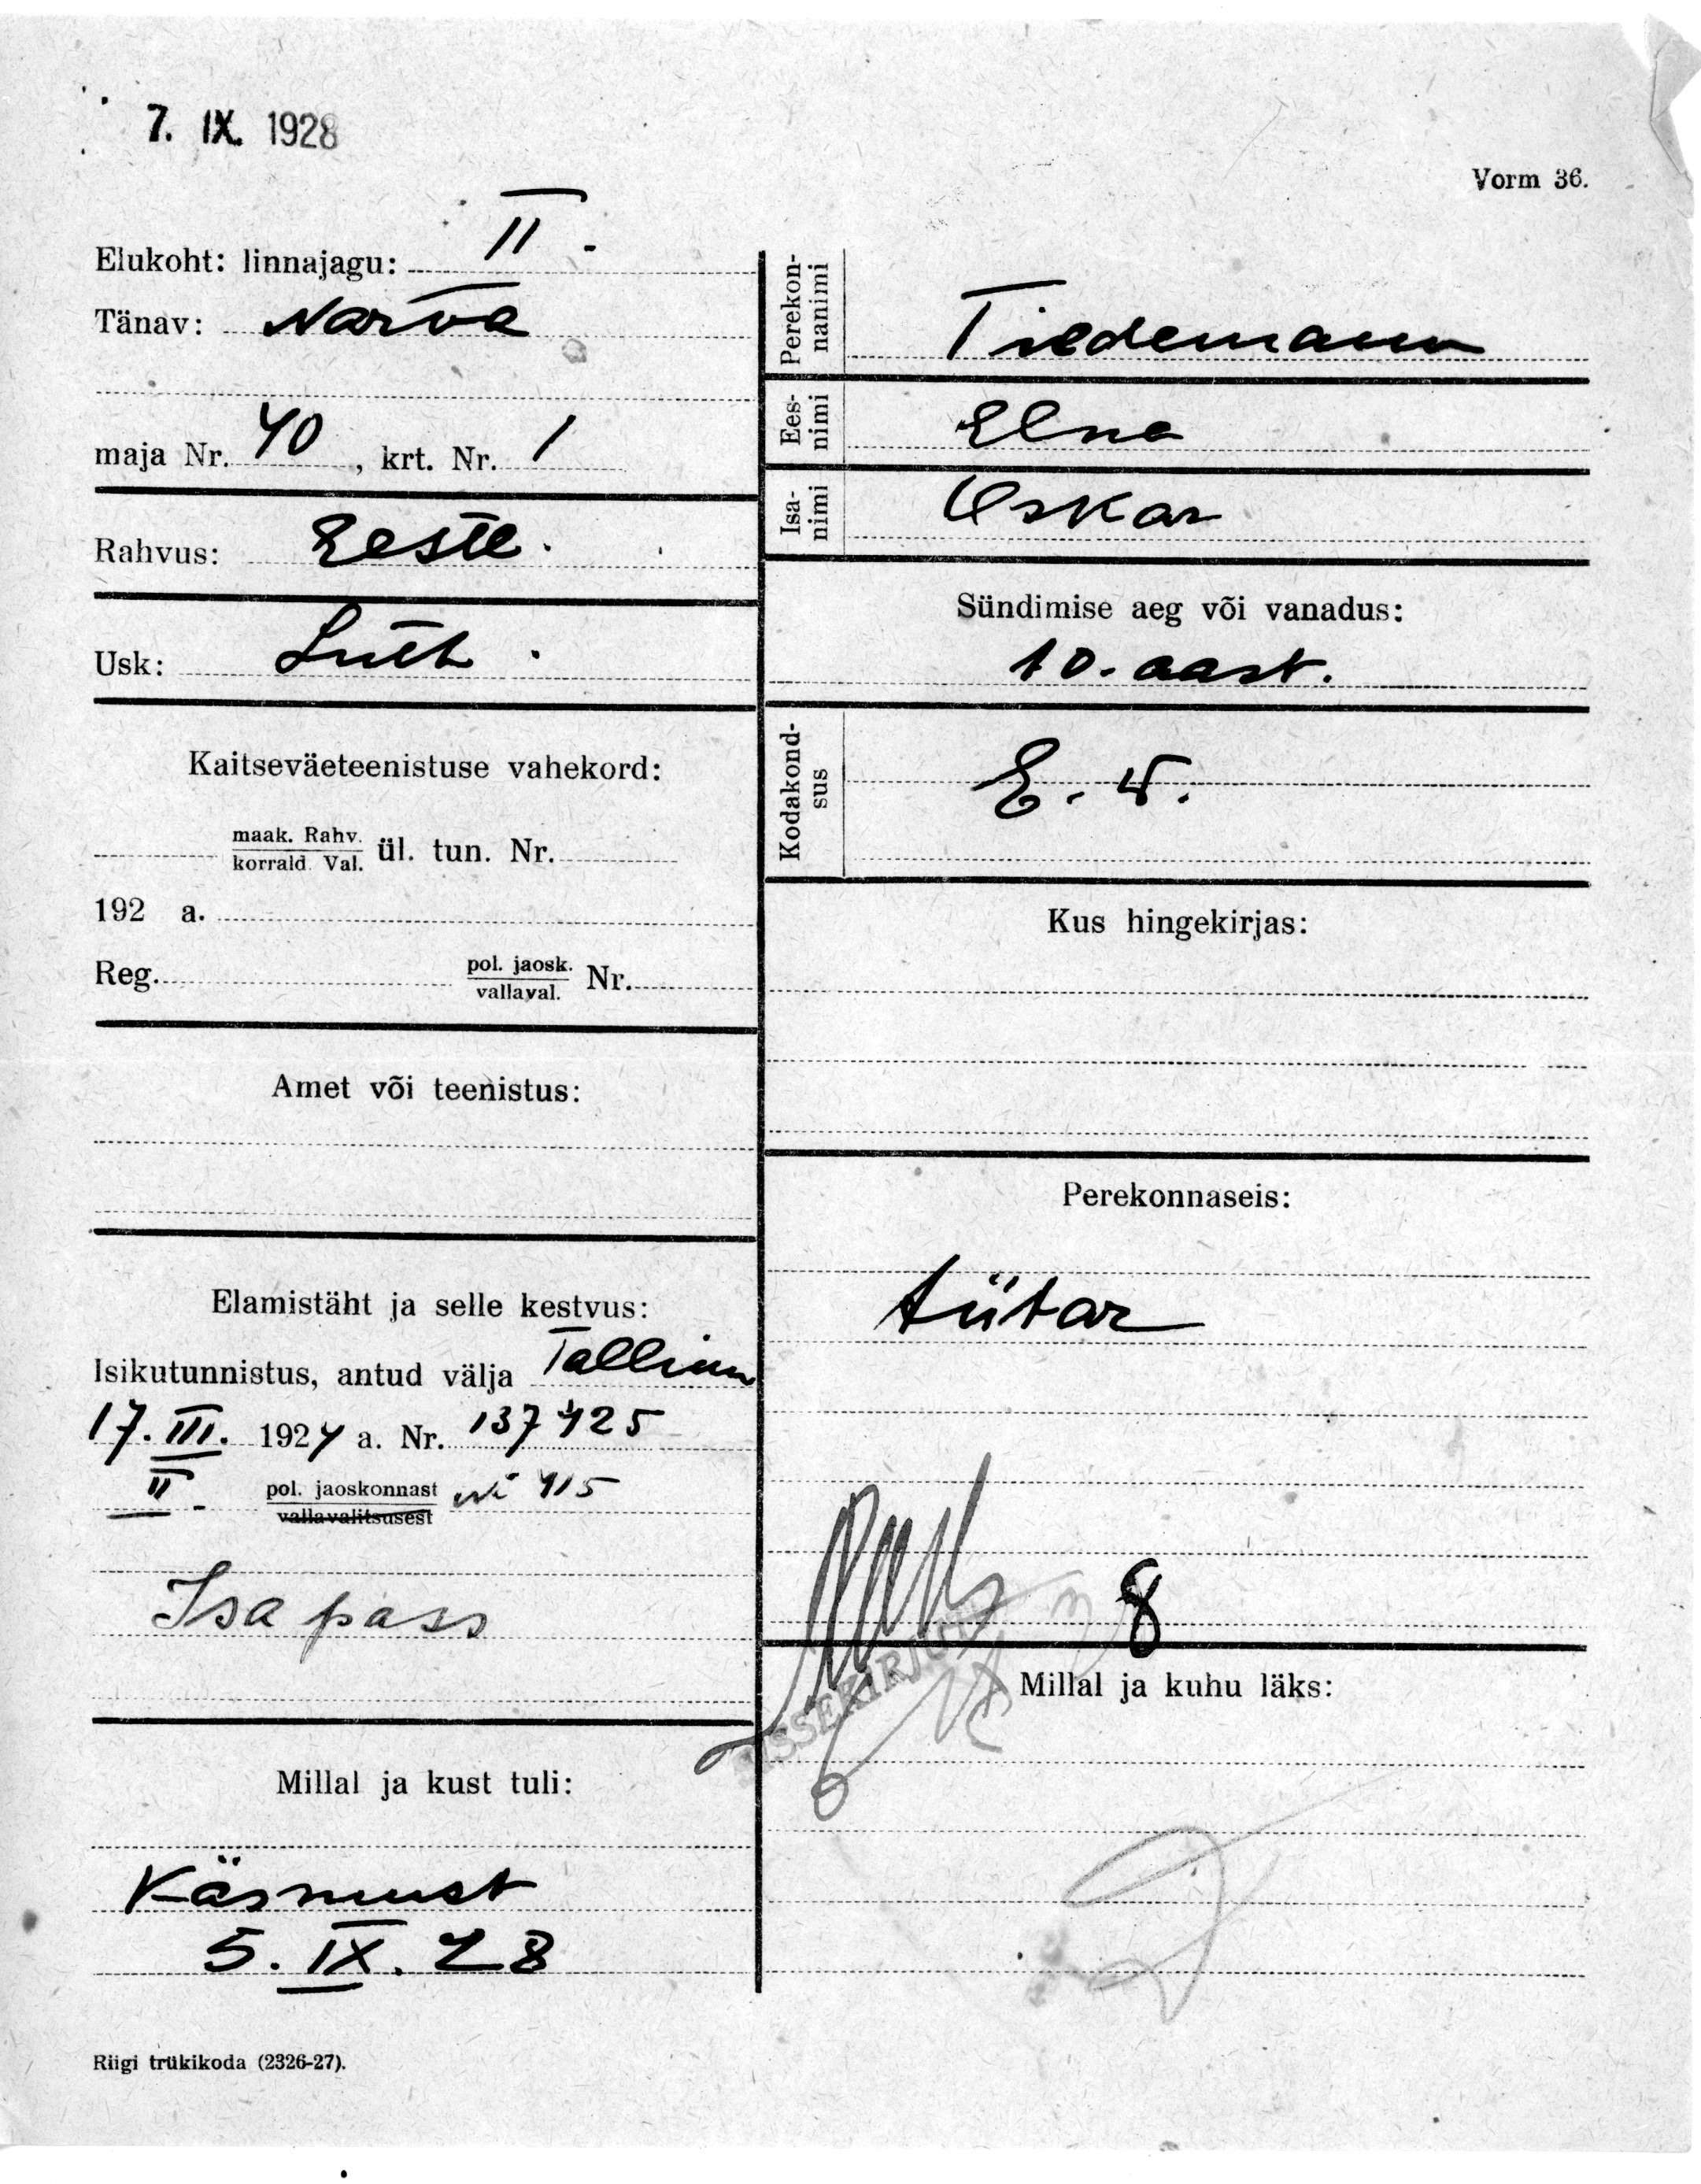 7. IX. 1928
Vorm 36.
Elukoht: linnajagu: II -
Tänav: Narva
maja Nr. 40, krt. Nr. 1
Rahvus: Eesti.
Usk: Luth.
Kaitseväeteenistuse vahekord:
maak. Rahv.
korrald. Val. ül. tun. Nr.
192 a.
Reg. pol. jaosk.
vallaval. Nr.
Amet või teenistus:
Elamistäht ja selle kestvus:
Isikutunnistus, antud välja Tallinn
17. III. 1924 a. Nr. 137425
II - pol. jaoskonnast 415
vallavalitsusest
Isa pass
Millal ja kust tuli:
Käsmust
5. IX. 28
Riigi trükikoda (2326-27).
Perekon-
nanimi
Tiedemann
Ees-
nimi
Elna
Isa-
nimi
Oskar
Sündimise aeg või vanadus:
10. aast.
Kodakond-
sus
E. V.
Kus hingekirjas:
Perekonnaseis:
tütar
8
SISSEKIRJUT
Millal ja kuhu läks: